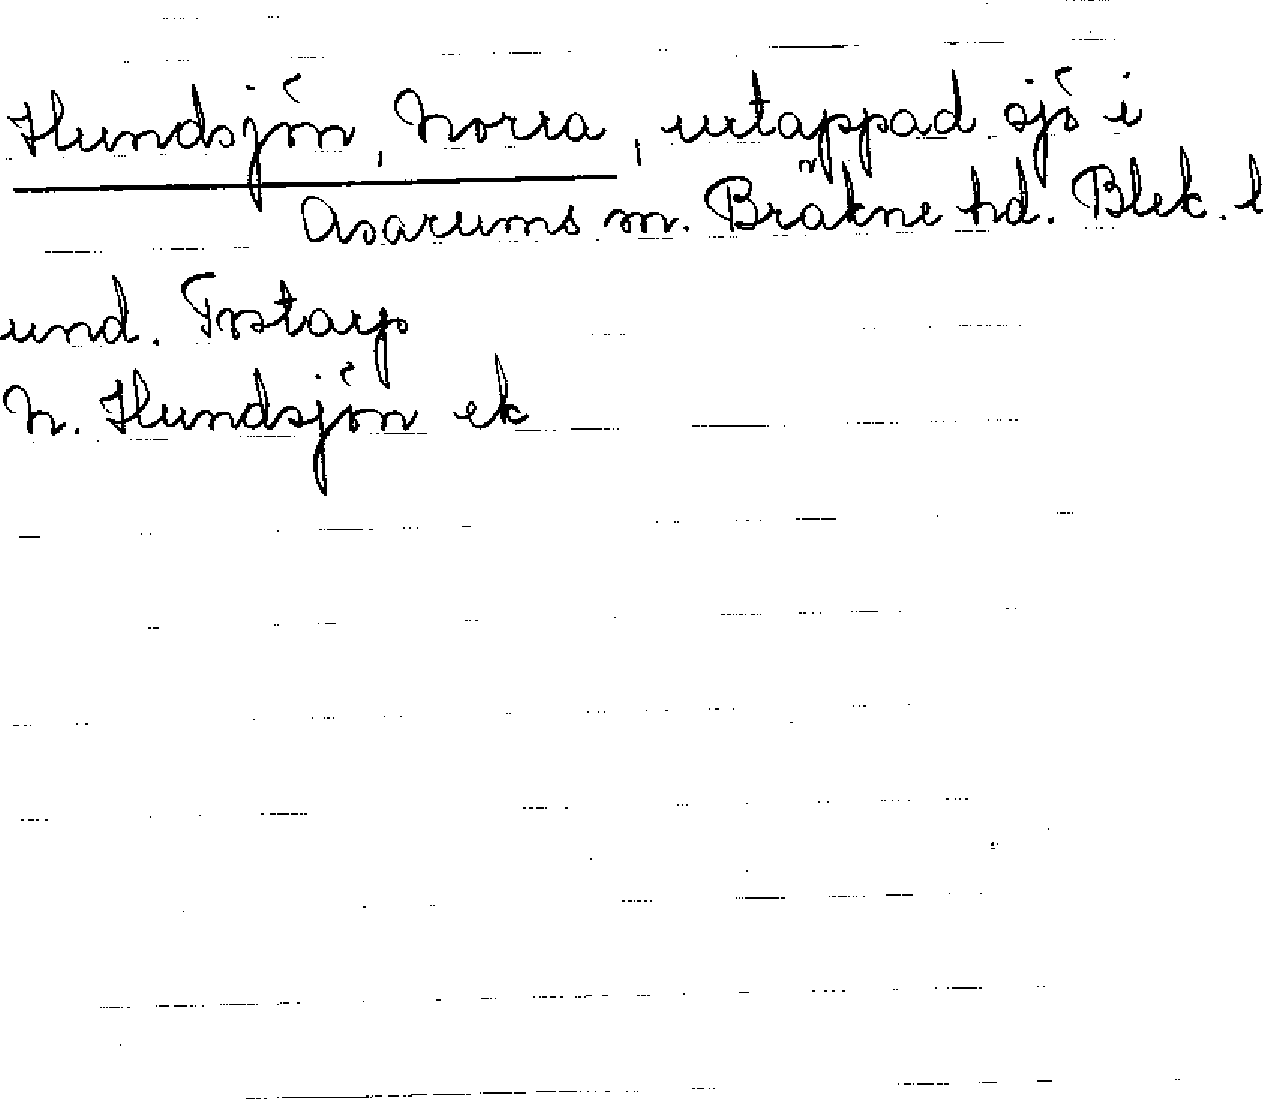 Hundsjön, Norra, uttappad sjö i
Asarums sn. Bräkne hd. Blek. l
und. Tostarp
N. Hundsjön ek